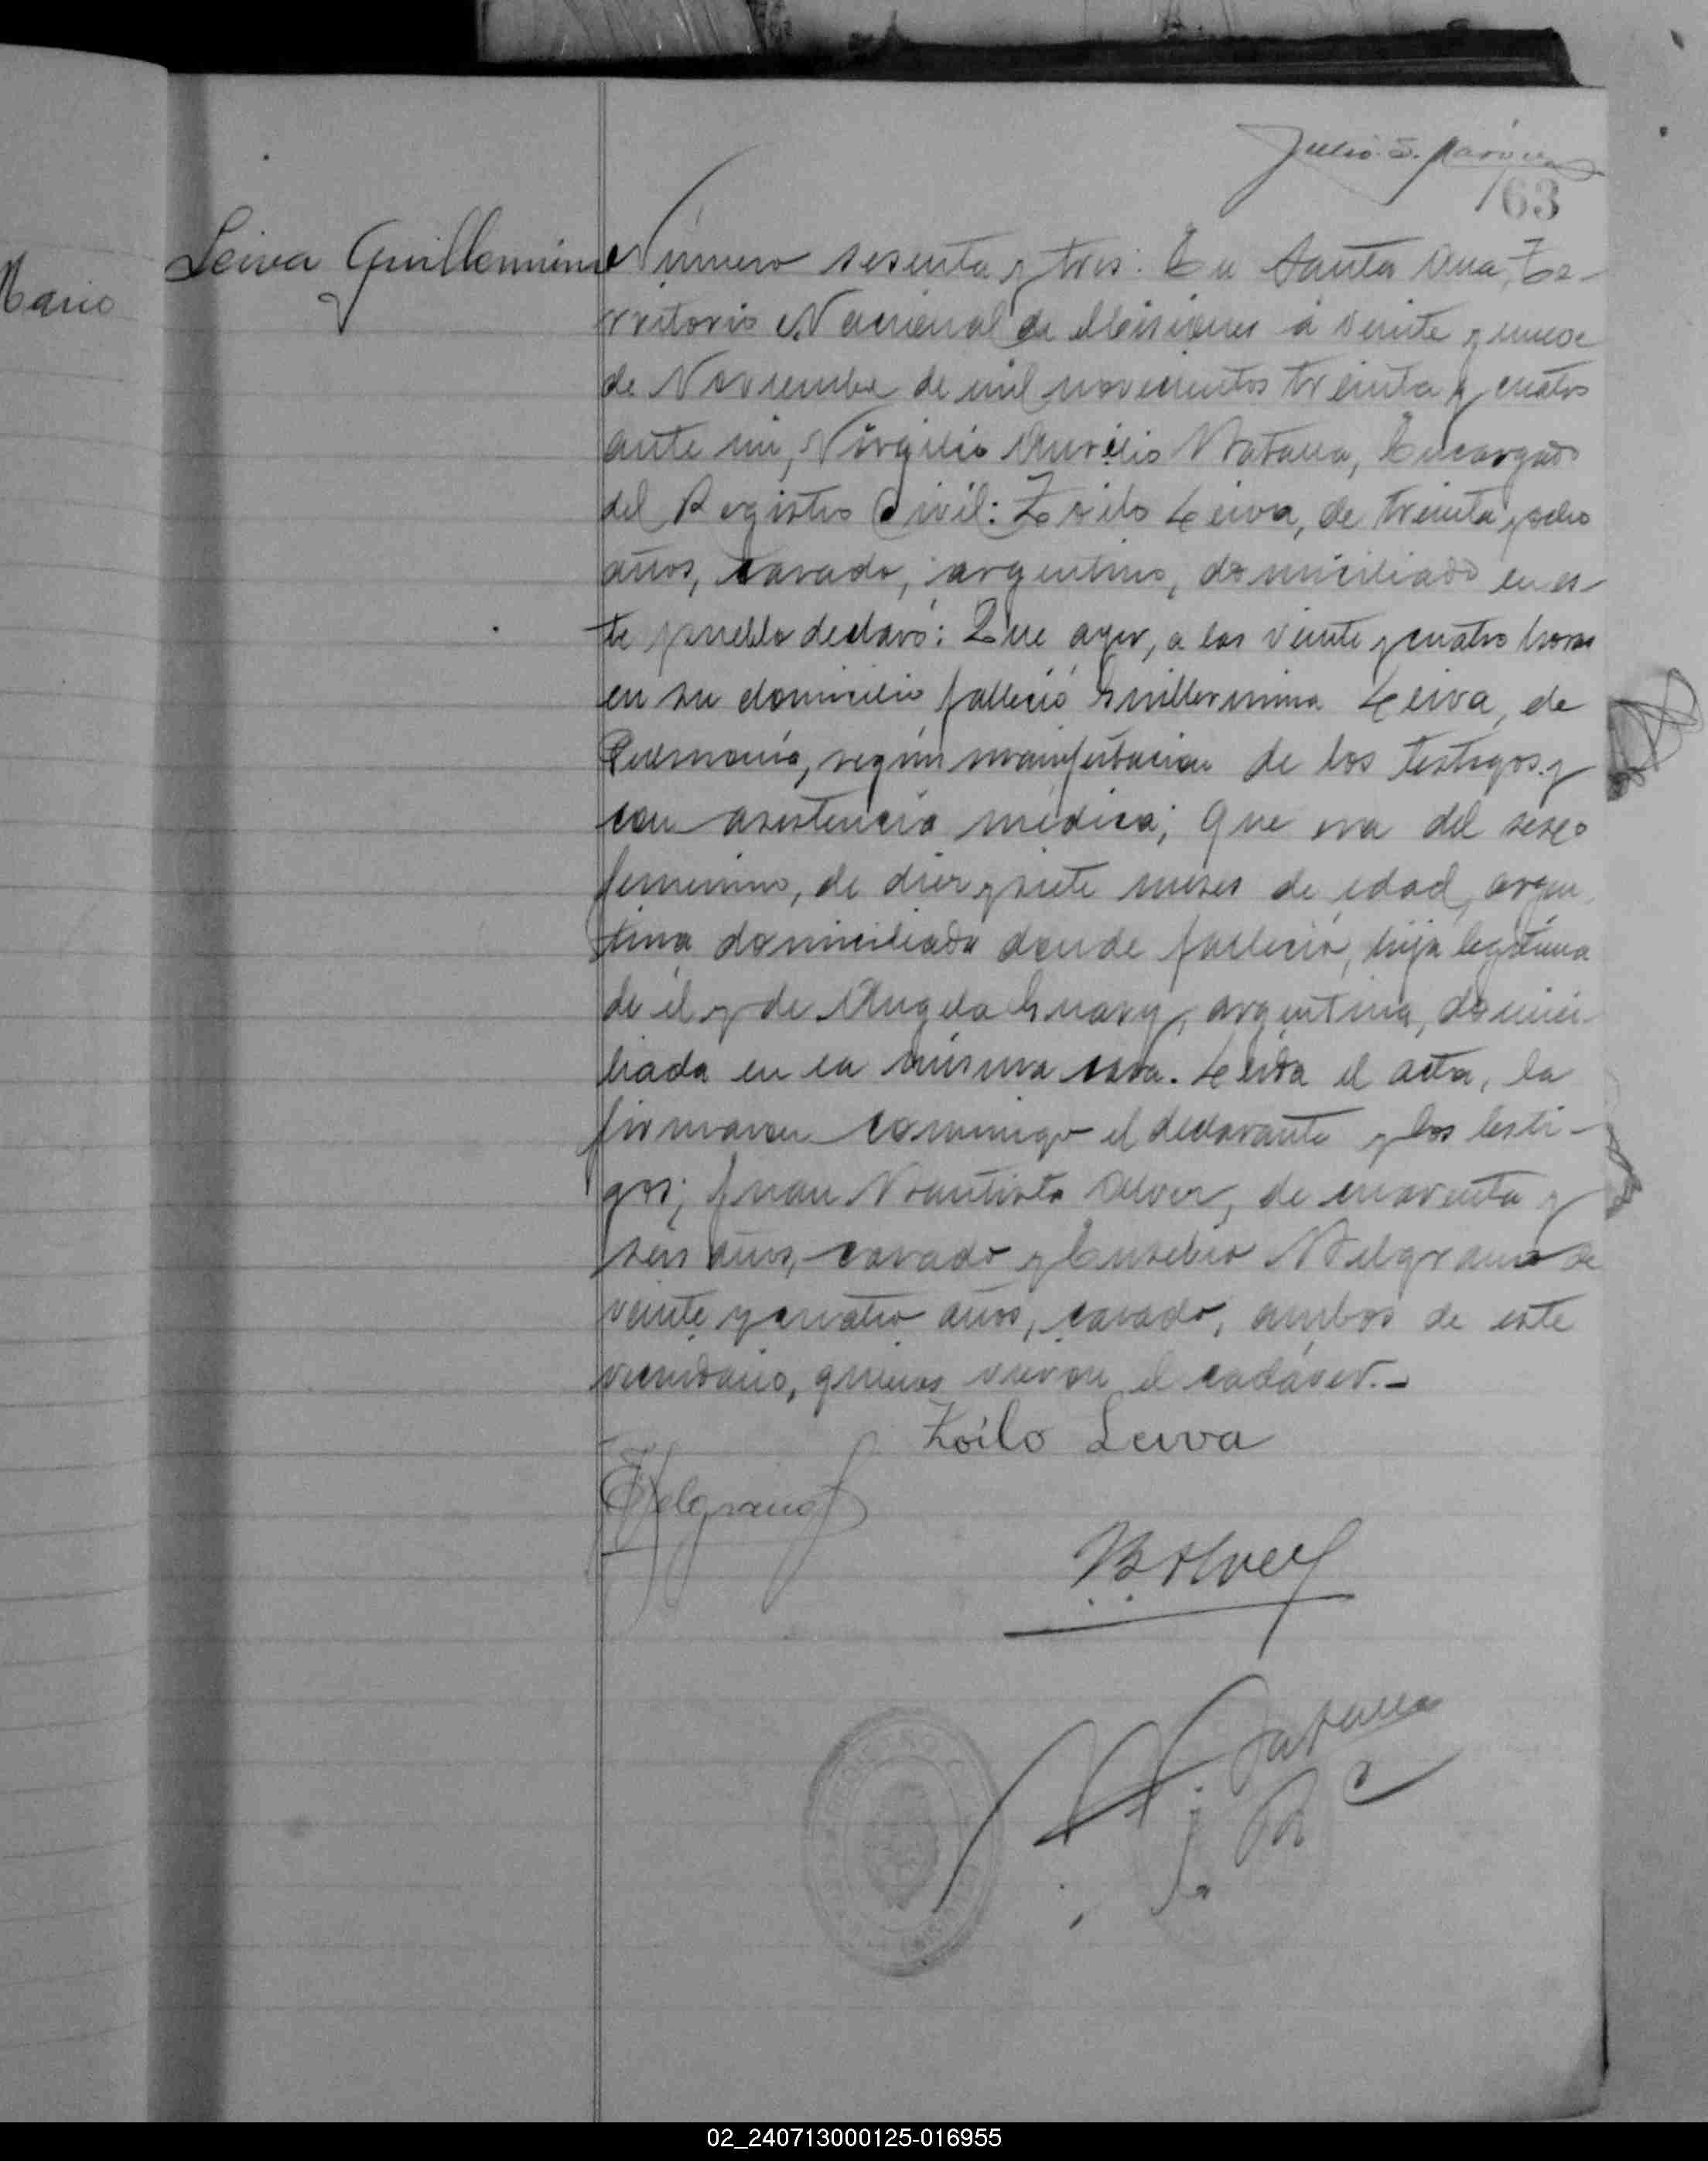 Julio
63
Mario
Leiva Guillermina
Número sesenta y tres: En Santa Ana, Te-
rritorio Nacional de Misiones á veinte y nueve
de Noviembre de mil novecientos treinta y cuatro
ante mi, Virgilio Aurelio Encargado
del Registro Civil: Zoilo Leiva, de treinta y ocho
años, casado, argentino, domiciliado en es-
te pueblo declaró: Que ayer, a las veinte y cuatro horas
en su domicilio falleció Guillermina Leiva, de
según manifestacion de los testigos y
con asistencia médica; que era del sexo
femenino, de diez y siete meses de edad, argen
tina domiciliada donde falleció, hija legitima
de él y de Angela argentina, domici-
liada en la misma casa. Leida el acta, la
firmaron conmigo el declarante y los testi-
gos; Juan Bautista Alvez, de cuarenta y
seis años, casado y Eusebio Belgrano de
veinte y cuatro años, casado, ambos de este
vecindario, quienes vieron el cadáver.-
Zoilo Leiva
EBelgrano
B Alvez